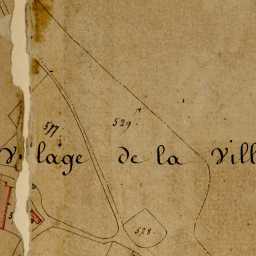 529
577
Village de la Vill
528